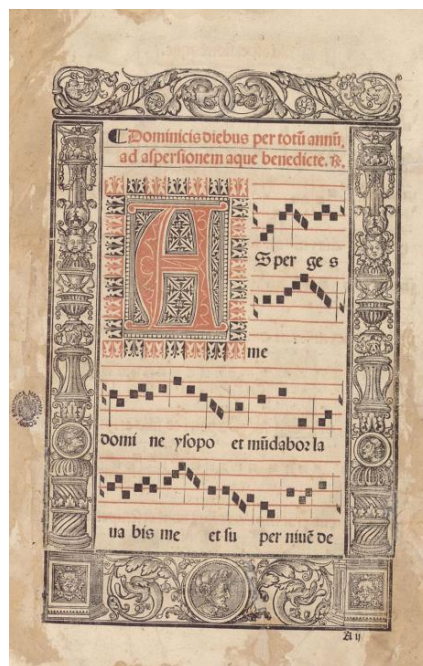 Dominicis diebus per totũ annũ,
ad aspersionem aque benedicte. ℟.
A
Sper ge s
me
domi ne ysopo et mũdabor la
ua bis me et su per niuẽ de
A ij